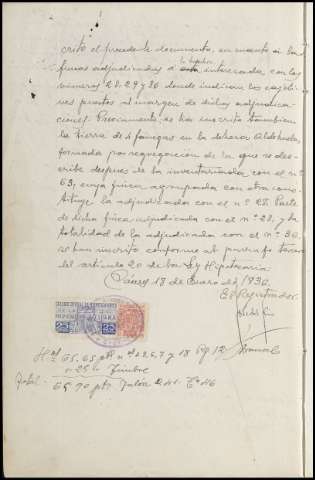 crito el precedente documento, en cuanto a las
fincas adjudicadas a esta interesada, con los
números 28, 29 y 30 donde indican los cajeti-
nes puestos al margen de dichas adjudica-
ciones. Previamente, se han inscrito tambien
la tierra de 4 fanegas en la dehesa Aldehuela,
formada por segregación de la que se des-
cribe despues de la inventariada con el nº
63, cuya finca agrupada con otra cons-
tituye la adjudicada con el nº 28. Parte
de dicha finca adjudicada con el nº 28, y la
totalidad de la adjudicada con el nº 30,
se han inscrito conforme al parrafo tercero
del artículo 20 de la Ley Hipotecaria
18 de Enero de 1930.
El Registrador.
65,65 pts 18
Timbre
Total
65 90 pts Talón